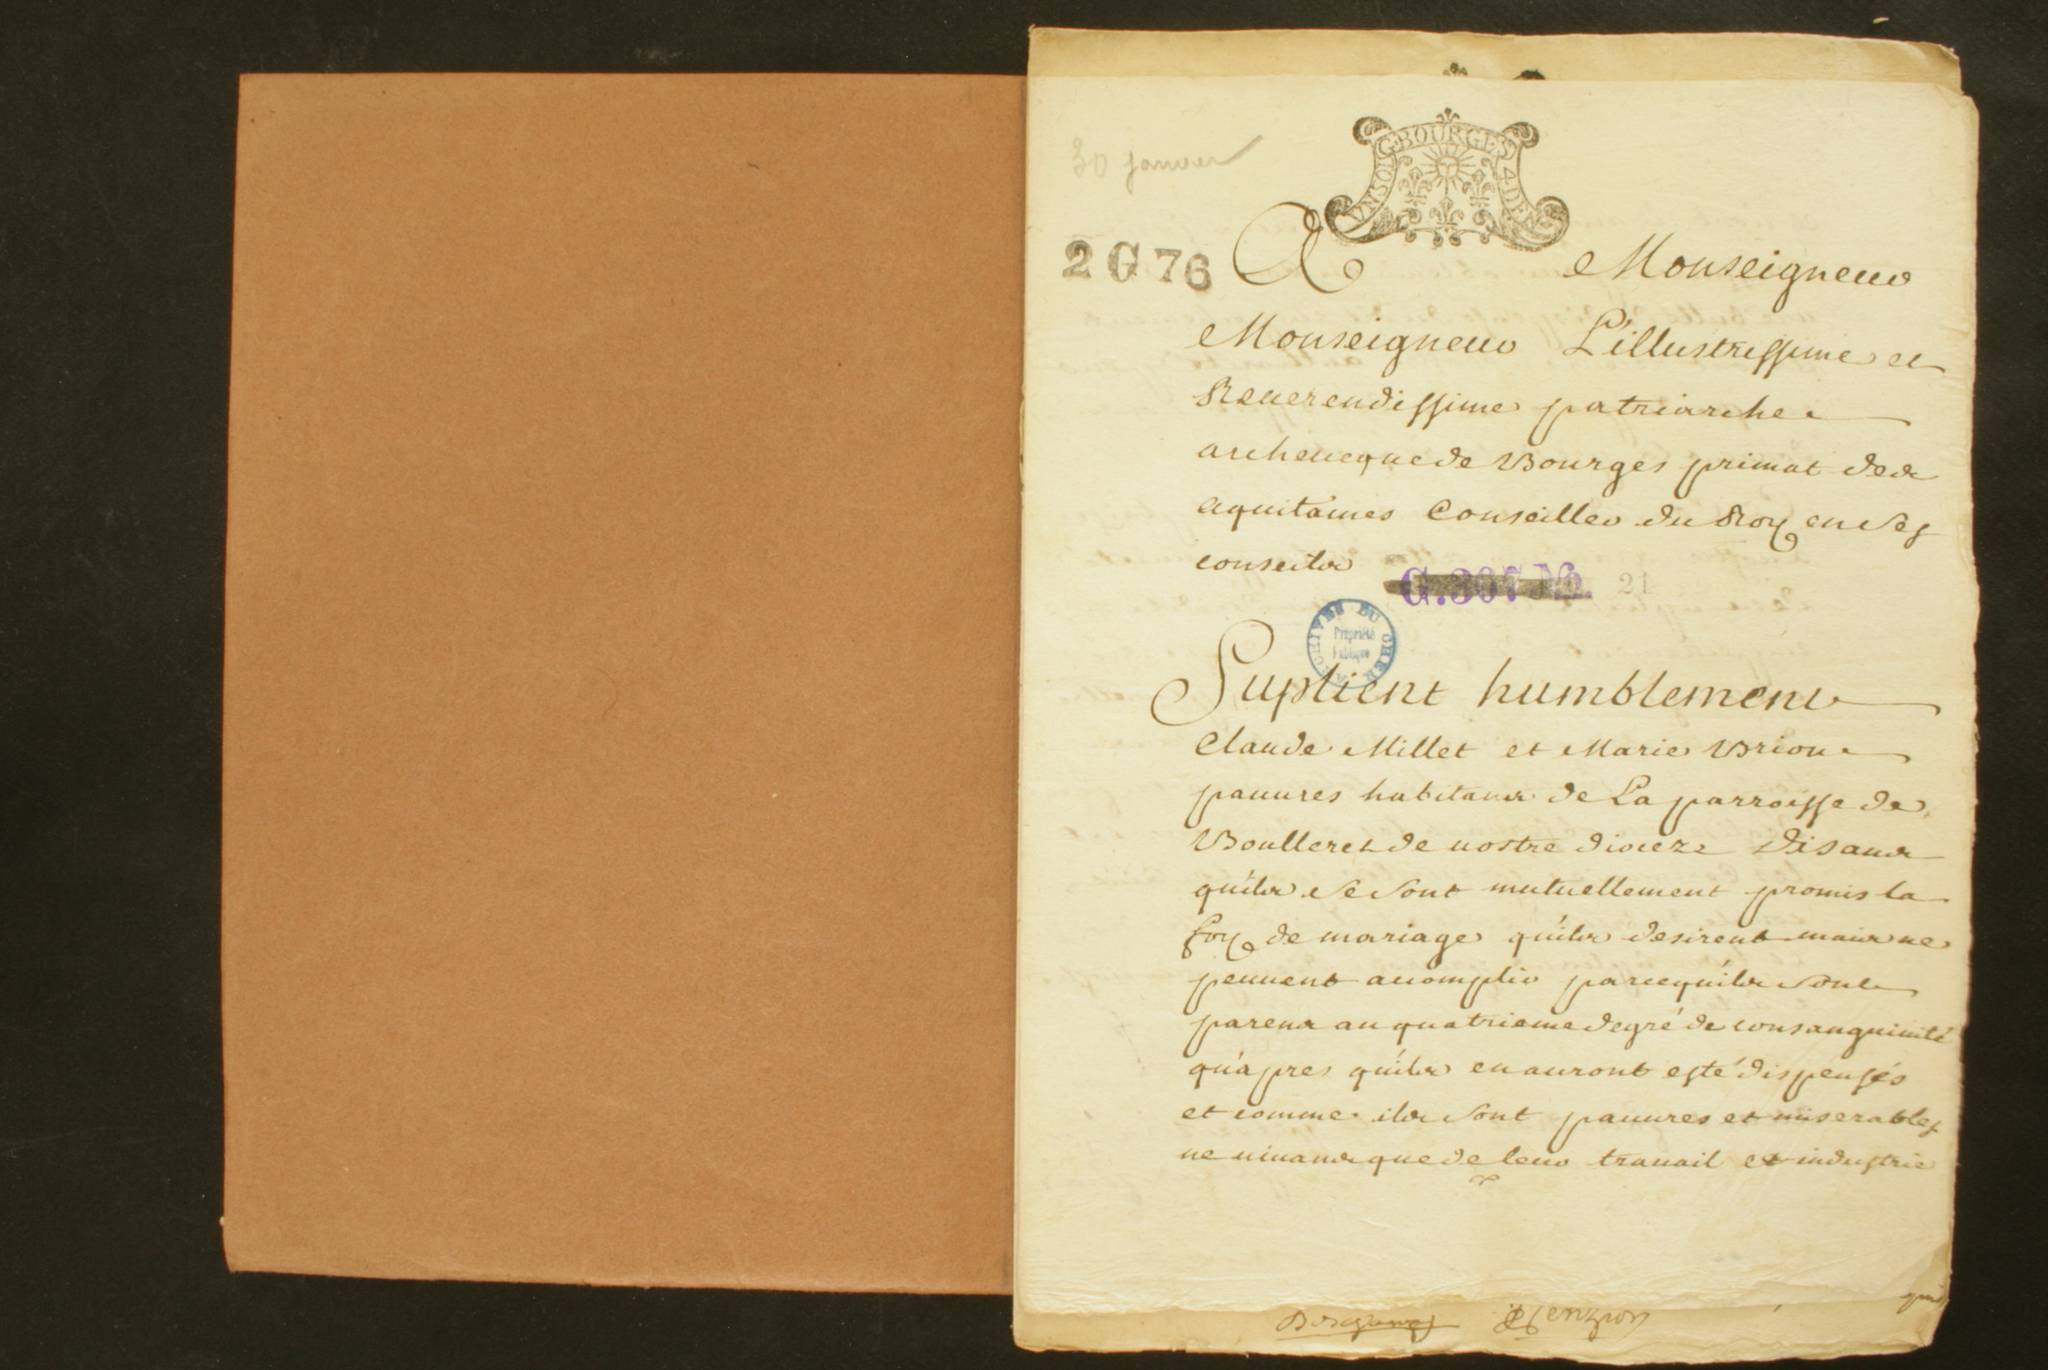 30 janvier
UN SOL G. BOURGES 4 DEN
2 G 76
A Monseigneur
Monseigneur L'illustrissime et
Reuerendissime patriarche
archeuesque de Bourges primat des
aquitaines Conseiller du Roy en ses
conseils
G. 307 No. 21
ARCHIVES DU CHER
Propriété
Publique
Suplient humblement
Claude Millet et Marie Brion
pauures habitans de La parroisse de
Boulleret de nostre dioceze disans
qu'ils se sont mutuellement promis la
foy de mariage qu'ils desirent mais ne
peuuent acomplir parcequ'ils sont
parens au quatrieme degré de consanguinité
qu'apres qu'ils en auront esté dispensés
et comme ils sont pauures et miserables
ne uiuans que de leur trauail et industrie